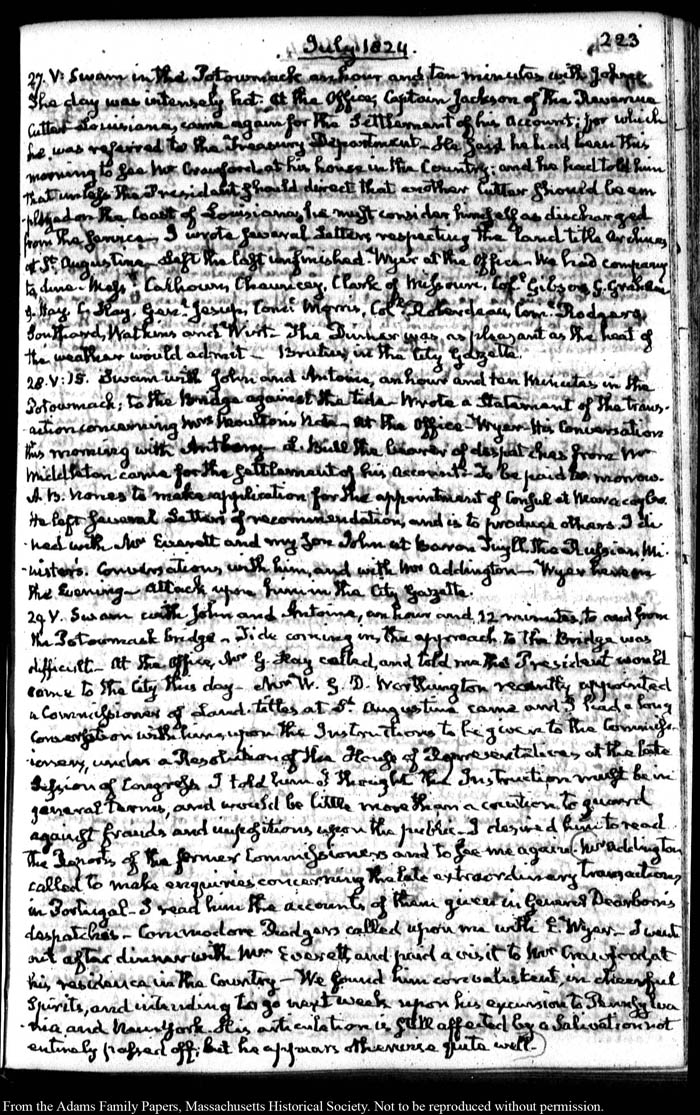 July 1824.
223
27. V: Swam in the Potowmack an hour and ten minutes with Johnz
The day was intensely hot. At the Office, Captain Jackson of the Revenue
Cutter Louisiana, came again for the Settlement of his Account; for which
he was referred to the Treasury Department— He said he had been this
morning to see Mr Crawford at his house in the Country; and he had told him
that unless the President should direct that another Cutter should be em
-ployed on the Coast of Louisiana, he must consider himself as discharged
from the service. I wrote several Letters respecting the land title Archives
at St. Augustine— Left the last unfinished— Wyer at the Office— We had company
to dine. Messrs Calhoun, Chauncey, Clark of Missouri, Coll Gibson, G. Graham
G. Hay, C. Hay, Genl Jesup, Comr Morris, Coll Roberdeau, Com: Rodgers,
Southard, Watkins and Wirt— The Dinner was as pleasant as the heat of
the weather would admit— Brutus, in the City Gazette.
28. V:15. Swam with John and Antoine, an hour and ten Minutes in the
Potowmack; to the Bridge against the tide— Wrote a Statement of the trans-
-action concerning Mrs Moulton's Note— At the Office— Wyer— His Conversation
this morning with Anthony— Bull the bearer of despatches from Mr
Middleton came for the settlement of his Account— To be paid to-morrow.
A. B. Nones to make application for the appointment of Consul at Maracaybo.
He left several Letters of recommendation, and is to produce others. I di
-ned with Mr Everett and my Son John at Baron Tuyll the Russian Mi-
-nister's. Conversations with him, and with Mr Addington— Wyer here in
the Evening— Attack upon him in the City Gazette.
29. V. Swam with John and Antoine, an hour and 12 minutes, to and from
the Potowmack bridge— Tide coming in, the approach to the Bridge was
difficult— At the Office, Mr G. Hay called, and told me the President would
come to the City this day— Mr W. G. D. Worthington recently appointed
a Commissioner of Land titles at St. Augustine came and I had a long
Conversation with him, upon the Instructions to be given to the Commiss-
-ioners, under a Resolution of the House of Representatives at the late
Session of Congress. I told him I thought the Instruction must be in
general terms, and would be little more than a caution to guard
against frauds and impositions upon the public— I desired him to read
the Reports of the former Commissioners and to see me again. Mr Addington
called to make enquiries concerning the late extraordinary transactions
in Portugal— I read him the accounts of them given in General Dearborn's
despatches— Commodore Rodgers called upon me with E. Wyer— I went
out after dinner with Mr Everett and paid a visit to Mr Crawford, at
his residence in the Country— We found him convalescent, in cheerful
Spirits, and intending to go next week upon his excursion to Pennsylva
-nia and New York. His articulation is still affected by a Salivation not
entirely passed off; but he appears otherwise quite well.
From the Adams Family Papers, Massachusetts Historical Society. Not to be reproduced without permission.